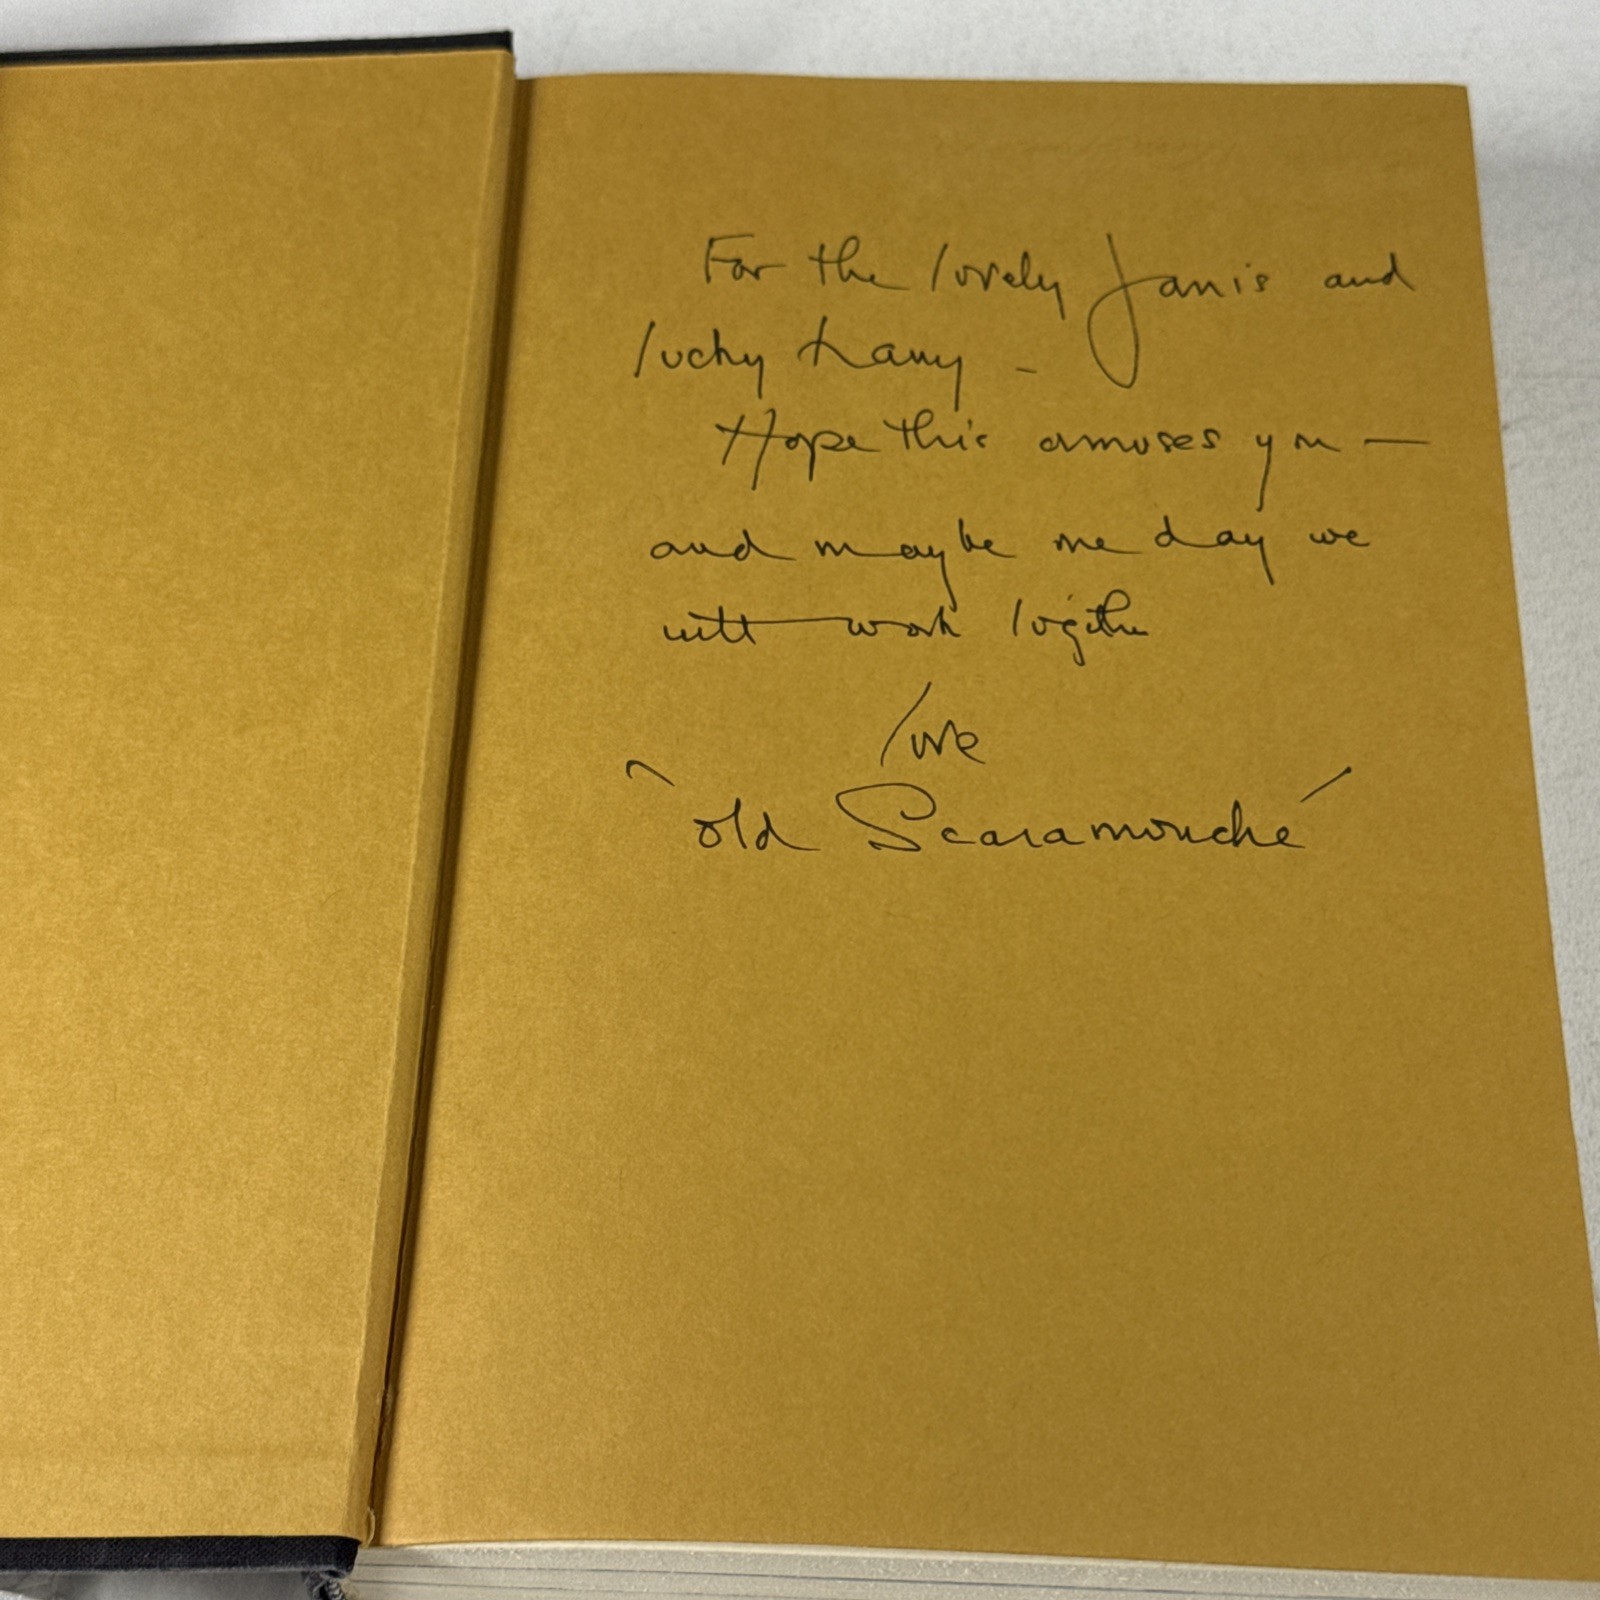 For the lovely Janis and
lucky Larry -
Hope this amuses you —
and maybe one day we
will work together
love
"old Scaramouche"